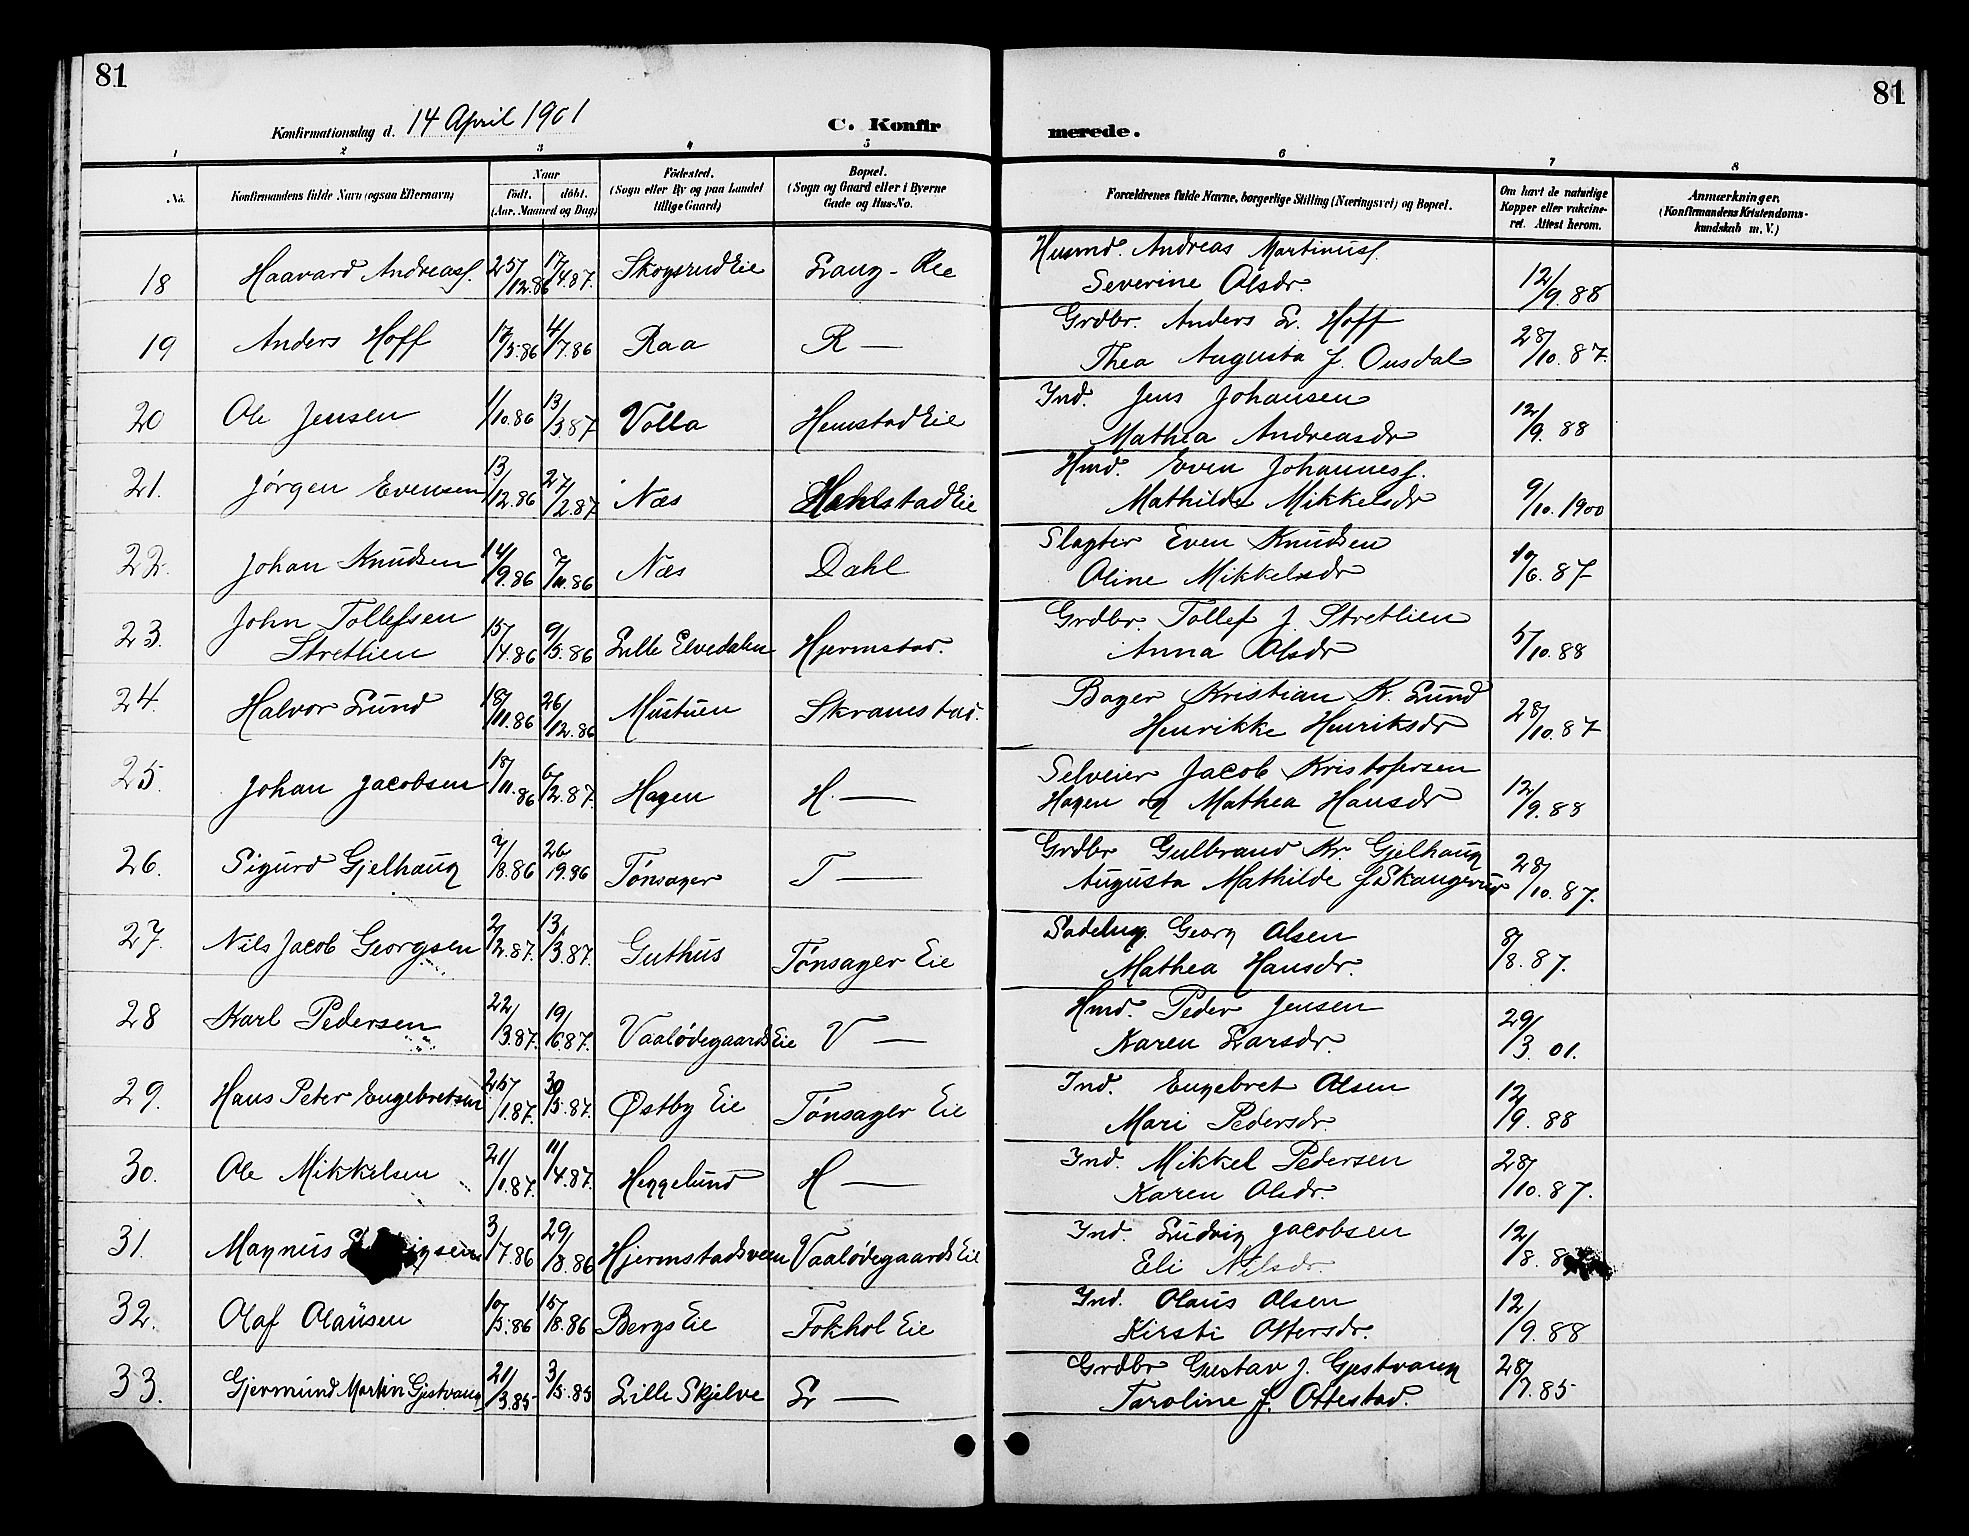 81
81
Konfirmationsdag d. 14 April 1901
C. Konfirmerede.
1 2 3 4 5 6 7 8
No.
Konfirmandens fulde Navn (ogsaa Efternavn)
Naar
födt. döbt.
(Aar, Maaned og Dag)
Födested.
(Sogn eller By og paa Landet
tillige Gaard)
Bopæl.
(Sogn og Gaard eller i Byerne
Gade og Hus-No.
Forældrenes fulde Navne, borgerlige Stilling (Næringsvei) og Bopæl.
Om havt de naturlige
Kopper eller vakcine-
ret. Attest herom.
Anmærkninger.
(Konfirmandens Kristendoms-
kundskab m. V.)
18 Haavard Andreasf. 25/12.86 17/4.87. Skogsrud Eie Lang-Ree Husmd. Andreas Martinusf.
Severine Olsdr. 12/9.88
19 Anders Hoff 17/5.86 4/7.86 Raa R — Grdbr. Anders L. Hoff
Thea Augusta f. Onsdal 28/10.87.
20 Ole Jensen 1/10.86 13/3.87 Volla Hemstad Eie Ind. Jens Johansen
Mathea Andreasdr 12/9.88
21. Jörgen Evensen 13/12.86 27/2.87 Næs Eie Hmd. Even Johannesf.
Mathilde Mikkelsdr 9/10.1900
22. Johan Knudsen 14/9.86 7/11.86 Næs Dahl Slagter Even Knudsen
Oline Mikkelsdr 17/6.87
23. John Tollefsen
Stretlien 15/4.86 9/5.86 Lille Elvedalen Hjermstad. Grdbr. Tollef J. Stretlien
Anna Olsdr 5/10.88
24. Halvor Lund 18/11.86 26/12.86 Mustuen Skramstad. Bager Kristian K. Lund
Henrikke Henriksdr 28/10.87
25. Johan Jacobsen 18/11.86 6/2.87. Hagen H. — Selveier Jacob Kristofersen
Hagen og Mathea Hansdr 12/9.88
26. Sigurd Gjelhaug /8.86 26/9.86 Tönsager T — Grdbr Gulbrand Kr. Gjelhaug
Augusta Mathilde f. Skangerud 28/10.87.
27. Nils Jacob Georgsen 2/2.87. 13/3.87. Guthus Tönsager Eie Sadelmg. Georg Olsen
Mathea Hansdr. 8/8.87.
28 Karl Pedersen 22/3.87. 19/6.87. Vaalödegaards Eie V — Hmd. Peder Jensen
Karen Larsdr. 29/3.01.
29. Hans Peter Engebretsen 25/1.87. 30/5.87. Østby Eie Tönsager Eie Ind. Engebret Olsen
Mari Pedersdr. 12/9.88
30. Ole Mikkelsen 21/1.87. 11/4.87. Heggelund H — Ind. Mikkel Pedersen
Karen Olsdr. 28/10.87.
31. Magnus 3/7.86 29/8.86 Hjermstadsveen Vaalödegaards Eie Ind. Ludvig Jacobsen
Eli Nilsdr. 12/8.8
32. Olaf Olausen 17/5.86 15/8.86 Bergs Eie Fokhol Eie Ind. Olaus Olsen
Kirsti Ottersdr. 12/9.88
33. Gjermund Martin Gjestvang 21/3.85 3/5.85 Lille Skjelve L — Grdbr Gustav J. Gjestvang
Taroline f. Ottestad. 28/7.85